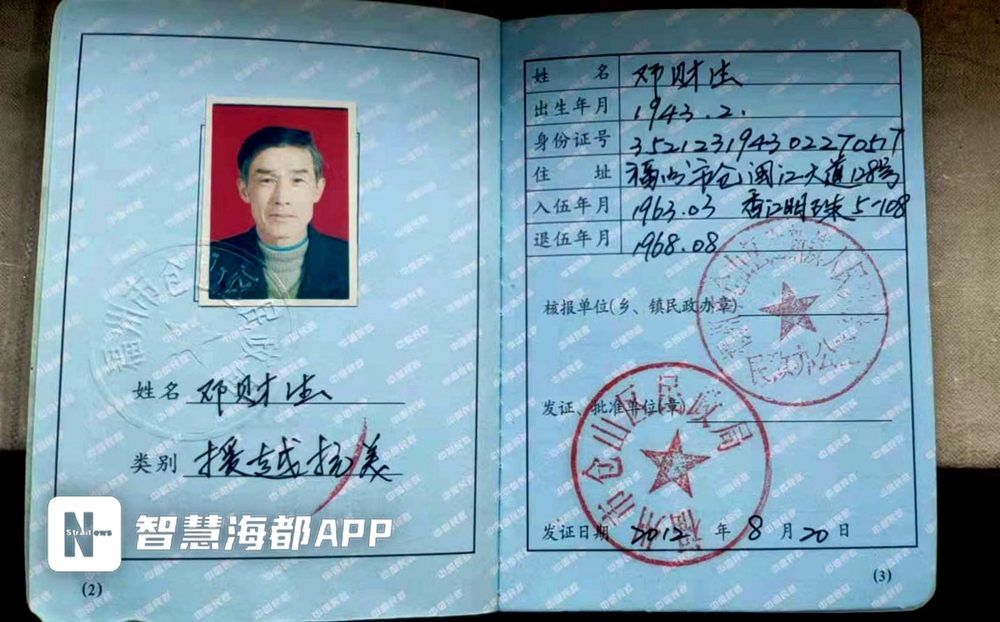 姓名 邓财法
类别 援越抗美
福州市仓山区民政局
智慧海都APP
N
Straitnews
(2)
姓名 邓财法
出生年月 1943.2.
身份证号 352123194302270517
住址 福州市仓闽江大道128号
香江明珠5-108
入伍年月 1963.03
退伍年月 1968.08
核报单位(乡、镇民政办章)
民政办公室
发证、批准单位(章)
福州市仓山区民政局
发证日期 2012 年 8 月 20 日
(3)